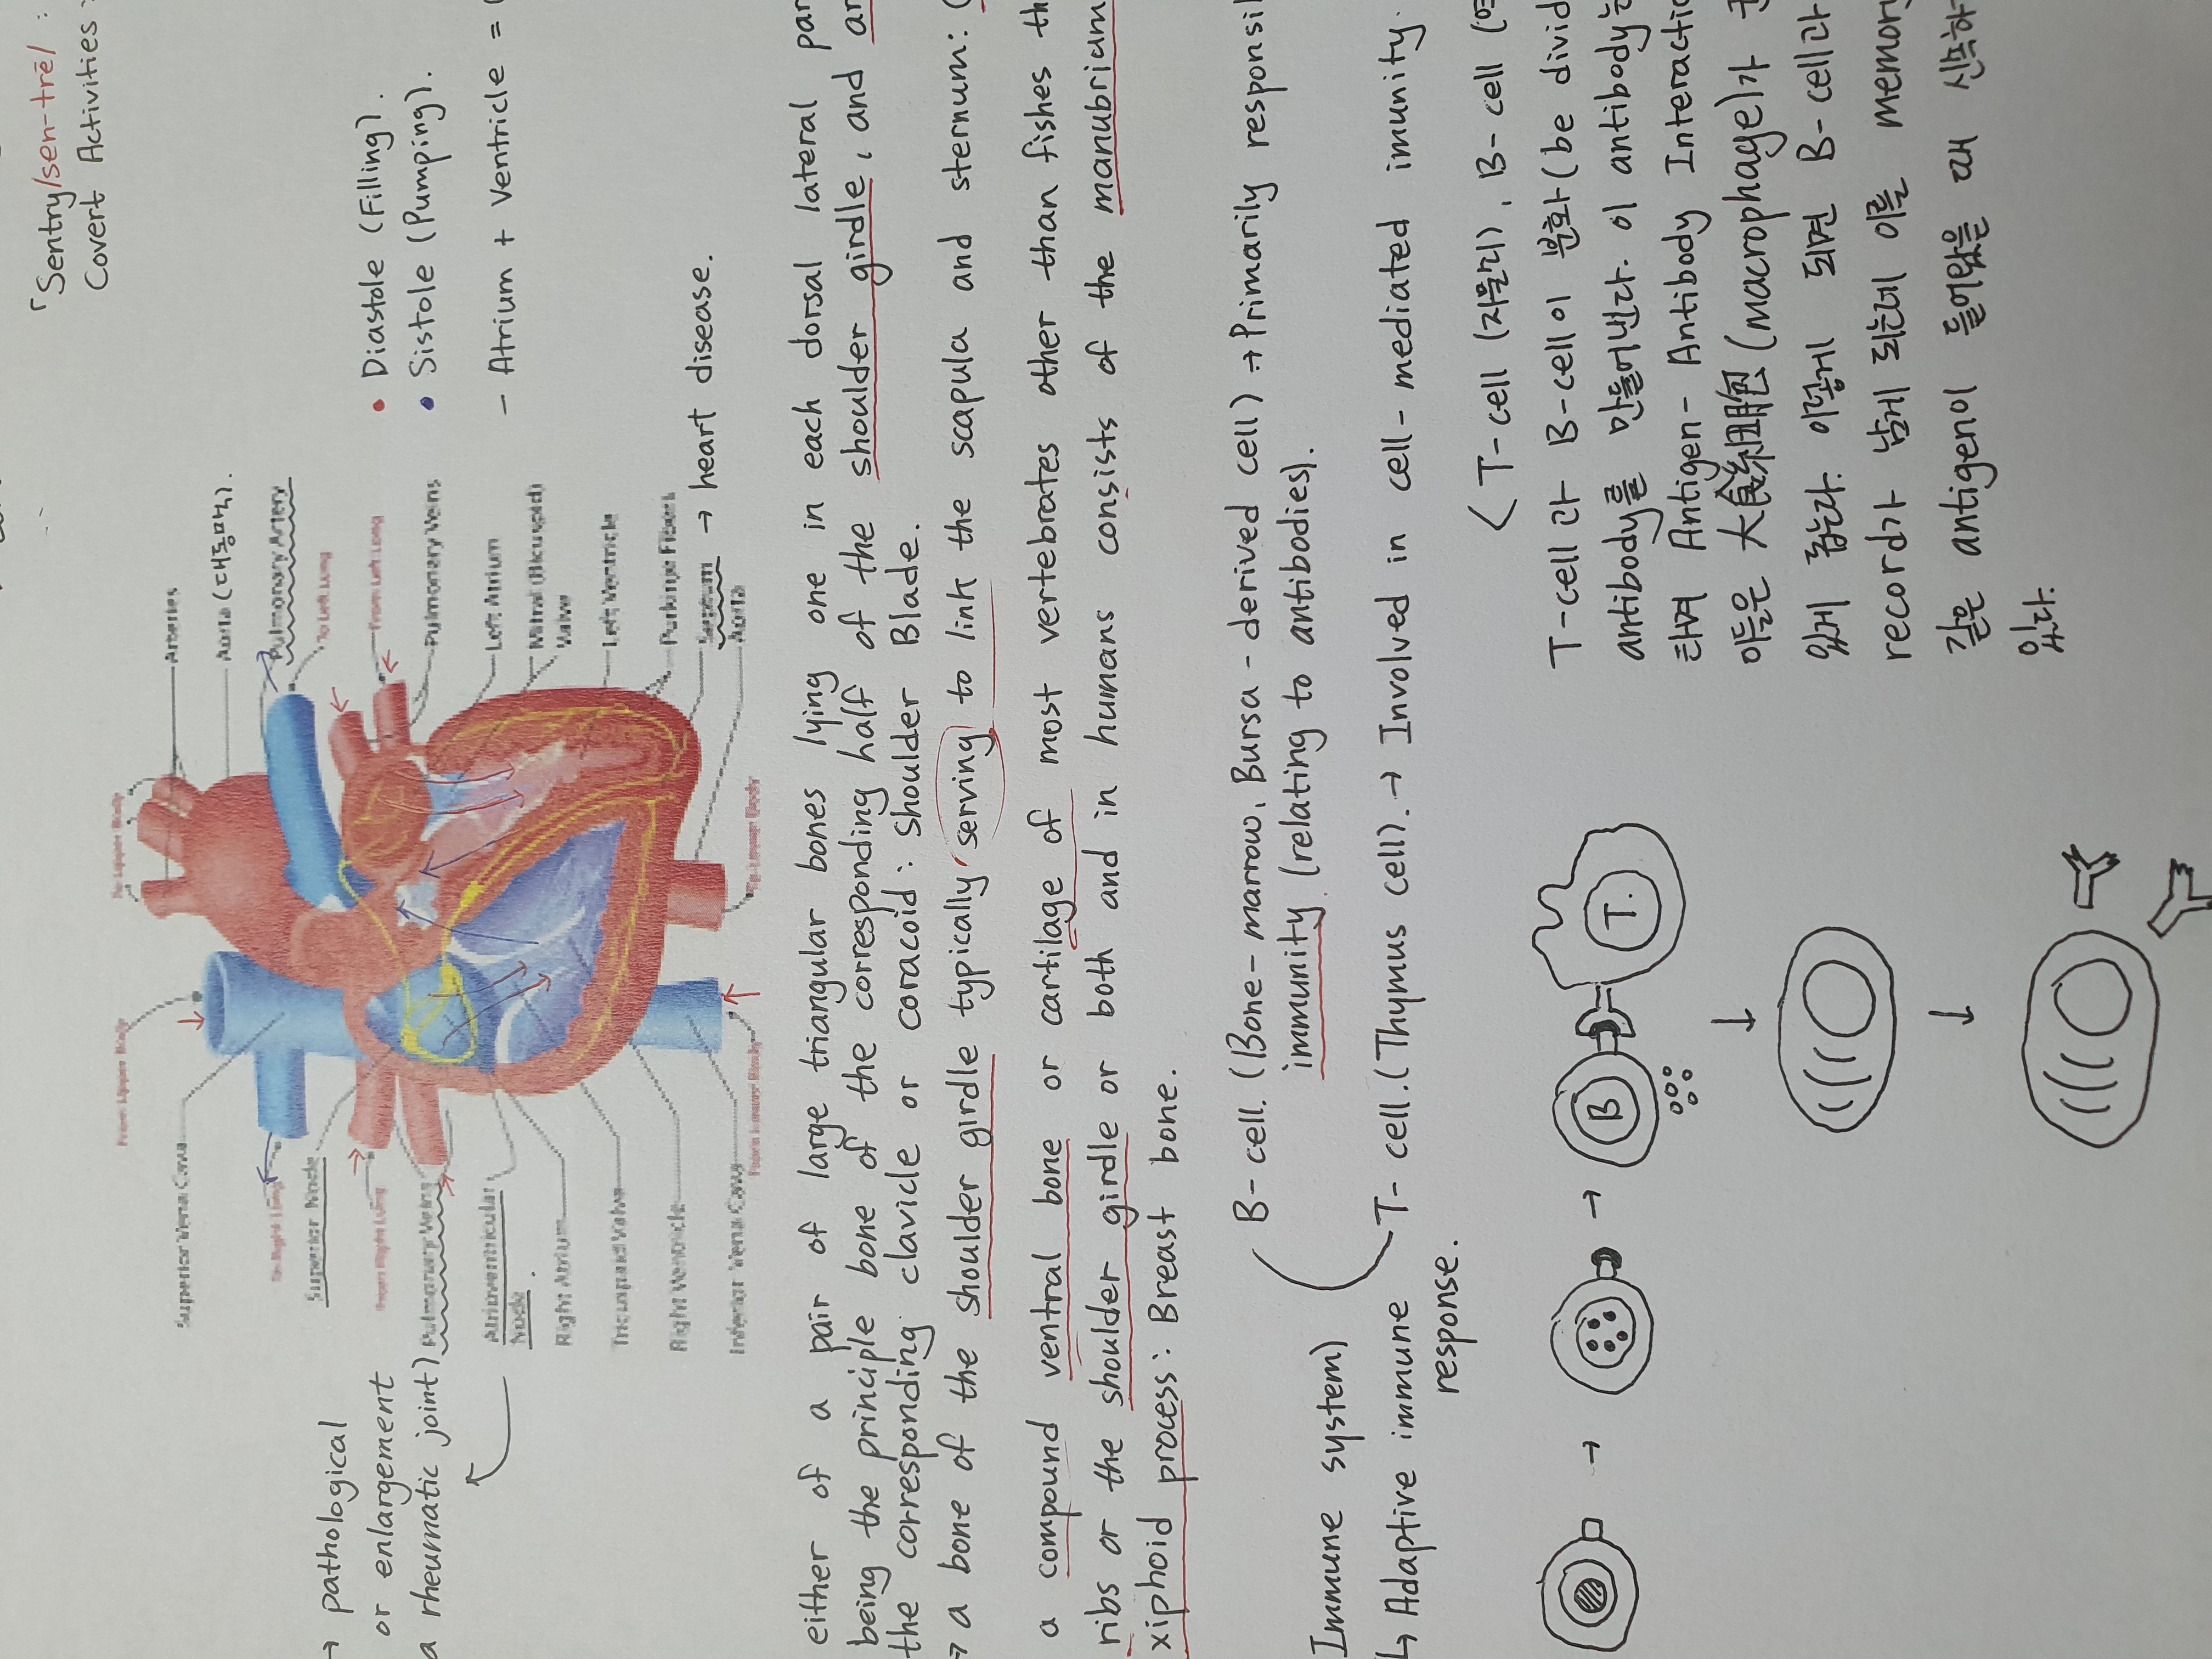 「Sentry/sen-trē/ :
Covert Activities :
Arteries
Aorta (대동맥).
Pulmonary Artery
To Left Lung
From Left Lung
Pulmonary Veins
Left Atrium
Mitral (Bicuspid)
Valve
Left Ventricle
Purkinje Fibers
Septum → heart disease.
Aorta
• Diastole (Filling).
• Sistole (Pumping).
- Atrium + Ventricle =
To Upper Body
From Upper Body
Superior Vena Cava
To Right Lung
Superior Node
From Right Lung
Pulmonary Veins
Atrioventricular
Node.
Right Atrium
Tricuspid Valve
Right Ventricle
Inferior Vena Cava
From Lower Body
To Lower Body
→ pathological
or enlargement
a rheumatic joint)
either of a pair of large triangular bones lying one in each dorsal lateral par
being the principle bone of the corresponding half of the shoulder girdle, and ar
the corresponding clavicle or coracoid : shoulder Blade.
→ a bone of the shoulder girdle typically serving to link the scapula and sternum: (
a compound ventral bone or cartilage of most vertebrates other than fishes th
ribs or the shoulder girdle or both and in humans consists of the manubrium
xiphoid process : Breast bone.
Immune system)
↳ Adaptive immune
response.
B-cell. (Bone-marrow, Bursa-derived cell) → Primarily responsil
immunity (relating to antibodies).
T-cell. (Thymus cell). → Involved in cell-mediated imunity.
B
T.
< T-cell (자율리), B-cell
T-cell 과 B-cell이 분화 (be divid
antibody를 만들어낸다. 이 antibody는
하며 Antigen-Antibody Interactio
이들은 大食細胞 (macrophage)가
있게 돕는다. 이렇게 되면 B-cell과
record가 남게 되는데 이를 memory
같은 antigen이 들어왔을 때 신속하
있다.